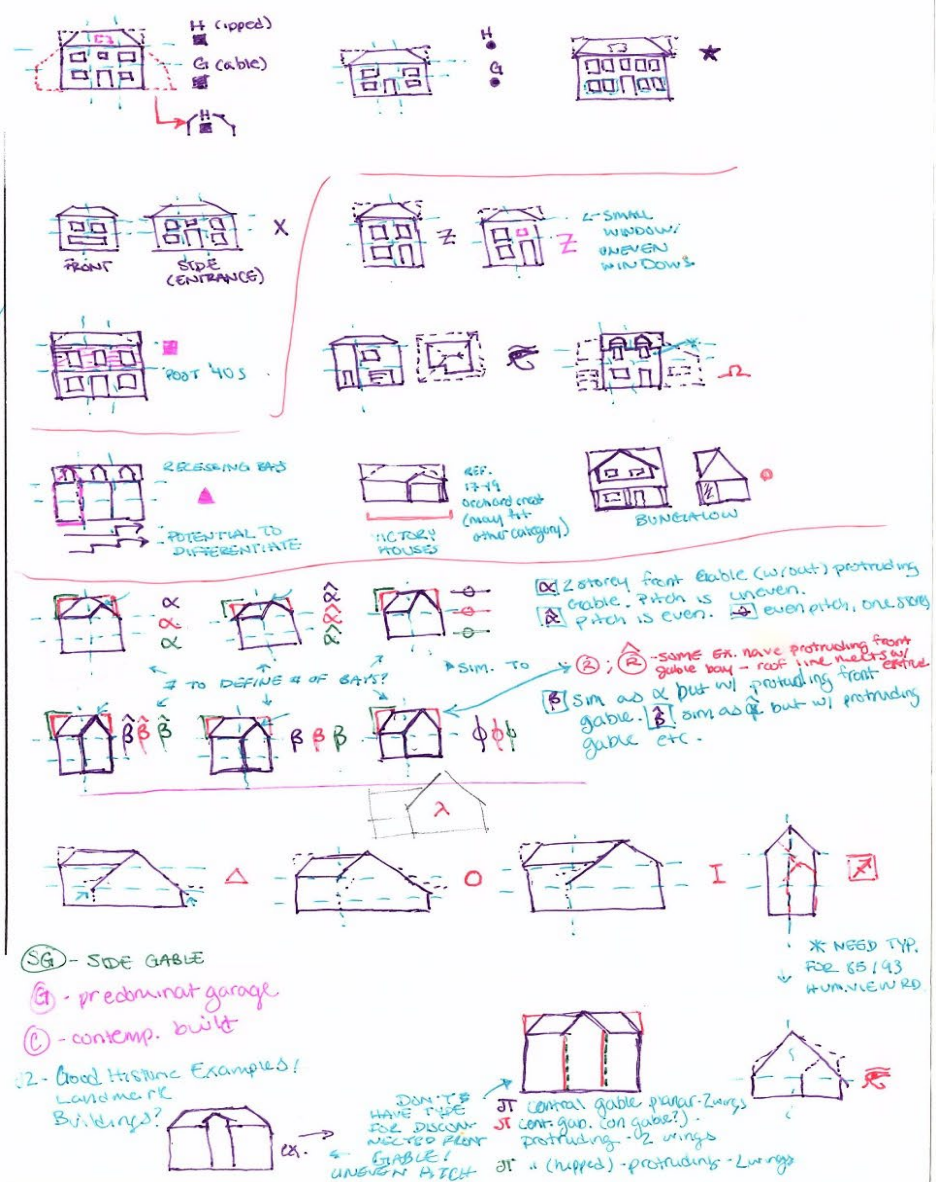 H (ipped)
G (able)
H
H
G
★
FRONT
SIDE
(ENTRANCE)
X
Z
Z
2-SMALL
WINDOW/
UNEVEN
WINDOWS.
POST '40S
Ω
RECESSING BAYS
POTENTIAL TO
DIFFERENTIATE
VICTORY
HOUSES
REF.
17-19
orchard crest
(may fit
other category)
BUNGALOW
α
α
α
α̂
α̂
α̂
α 2 storey front Gable (w/out) protruding
Gable. Pitch is uneven.
α̂ pitch is even. even pitch, one storey
# TO DEFINE # OF BAYS?
SIM. TO
R ; R̂ - SOME EX. have protruding front
gable bay - roof line meets w/
β sim as α but w/ protruding front
gable. β̂ sim as α̂ but w/ protruding
gable etc.
β̂ β̂ β̂
β β β
ϕ ϕ ϕ
λ
△
O
I
* NEED TYP.
FOR 85/93
HUM.VIEW RD
SG - SIDE GABLE
G - predominat garage
C - contemp. built
- Good Historic Examples/
Landmark
Buildings?
ex.
DON'T
HAVE TYPE
FOR DISCON-
NECTED FRONT
GABLE/
UNEVEN PITCH
π central gable planar-2wings
π cent. gab. (on gable?) -
protruding - 2 wings
π " (hipped) - protruding - 2wings